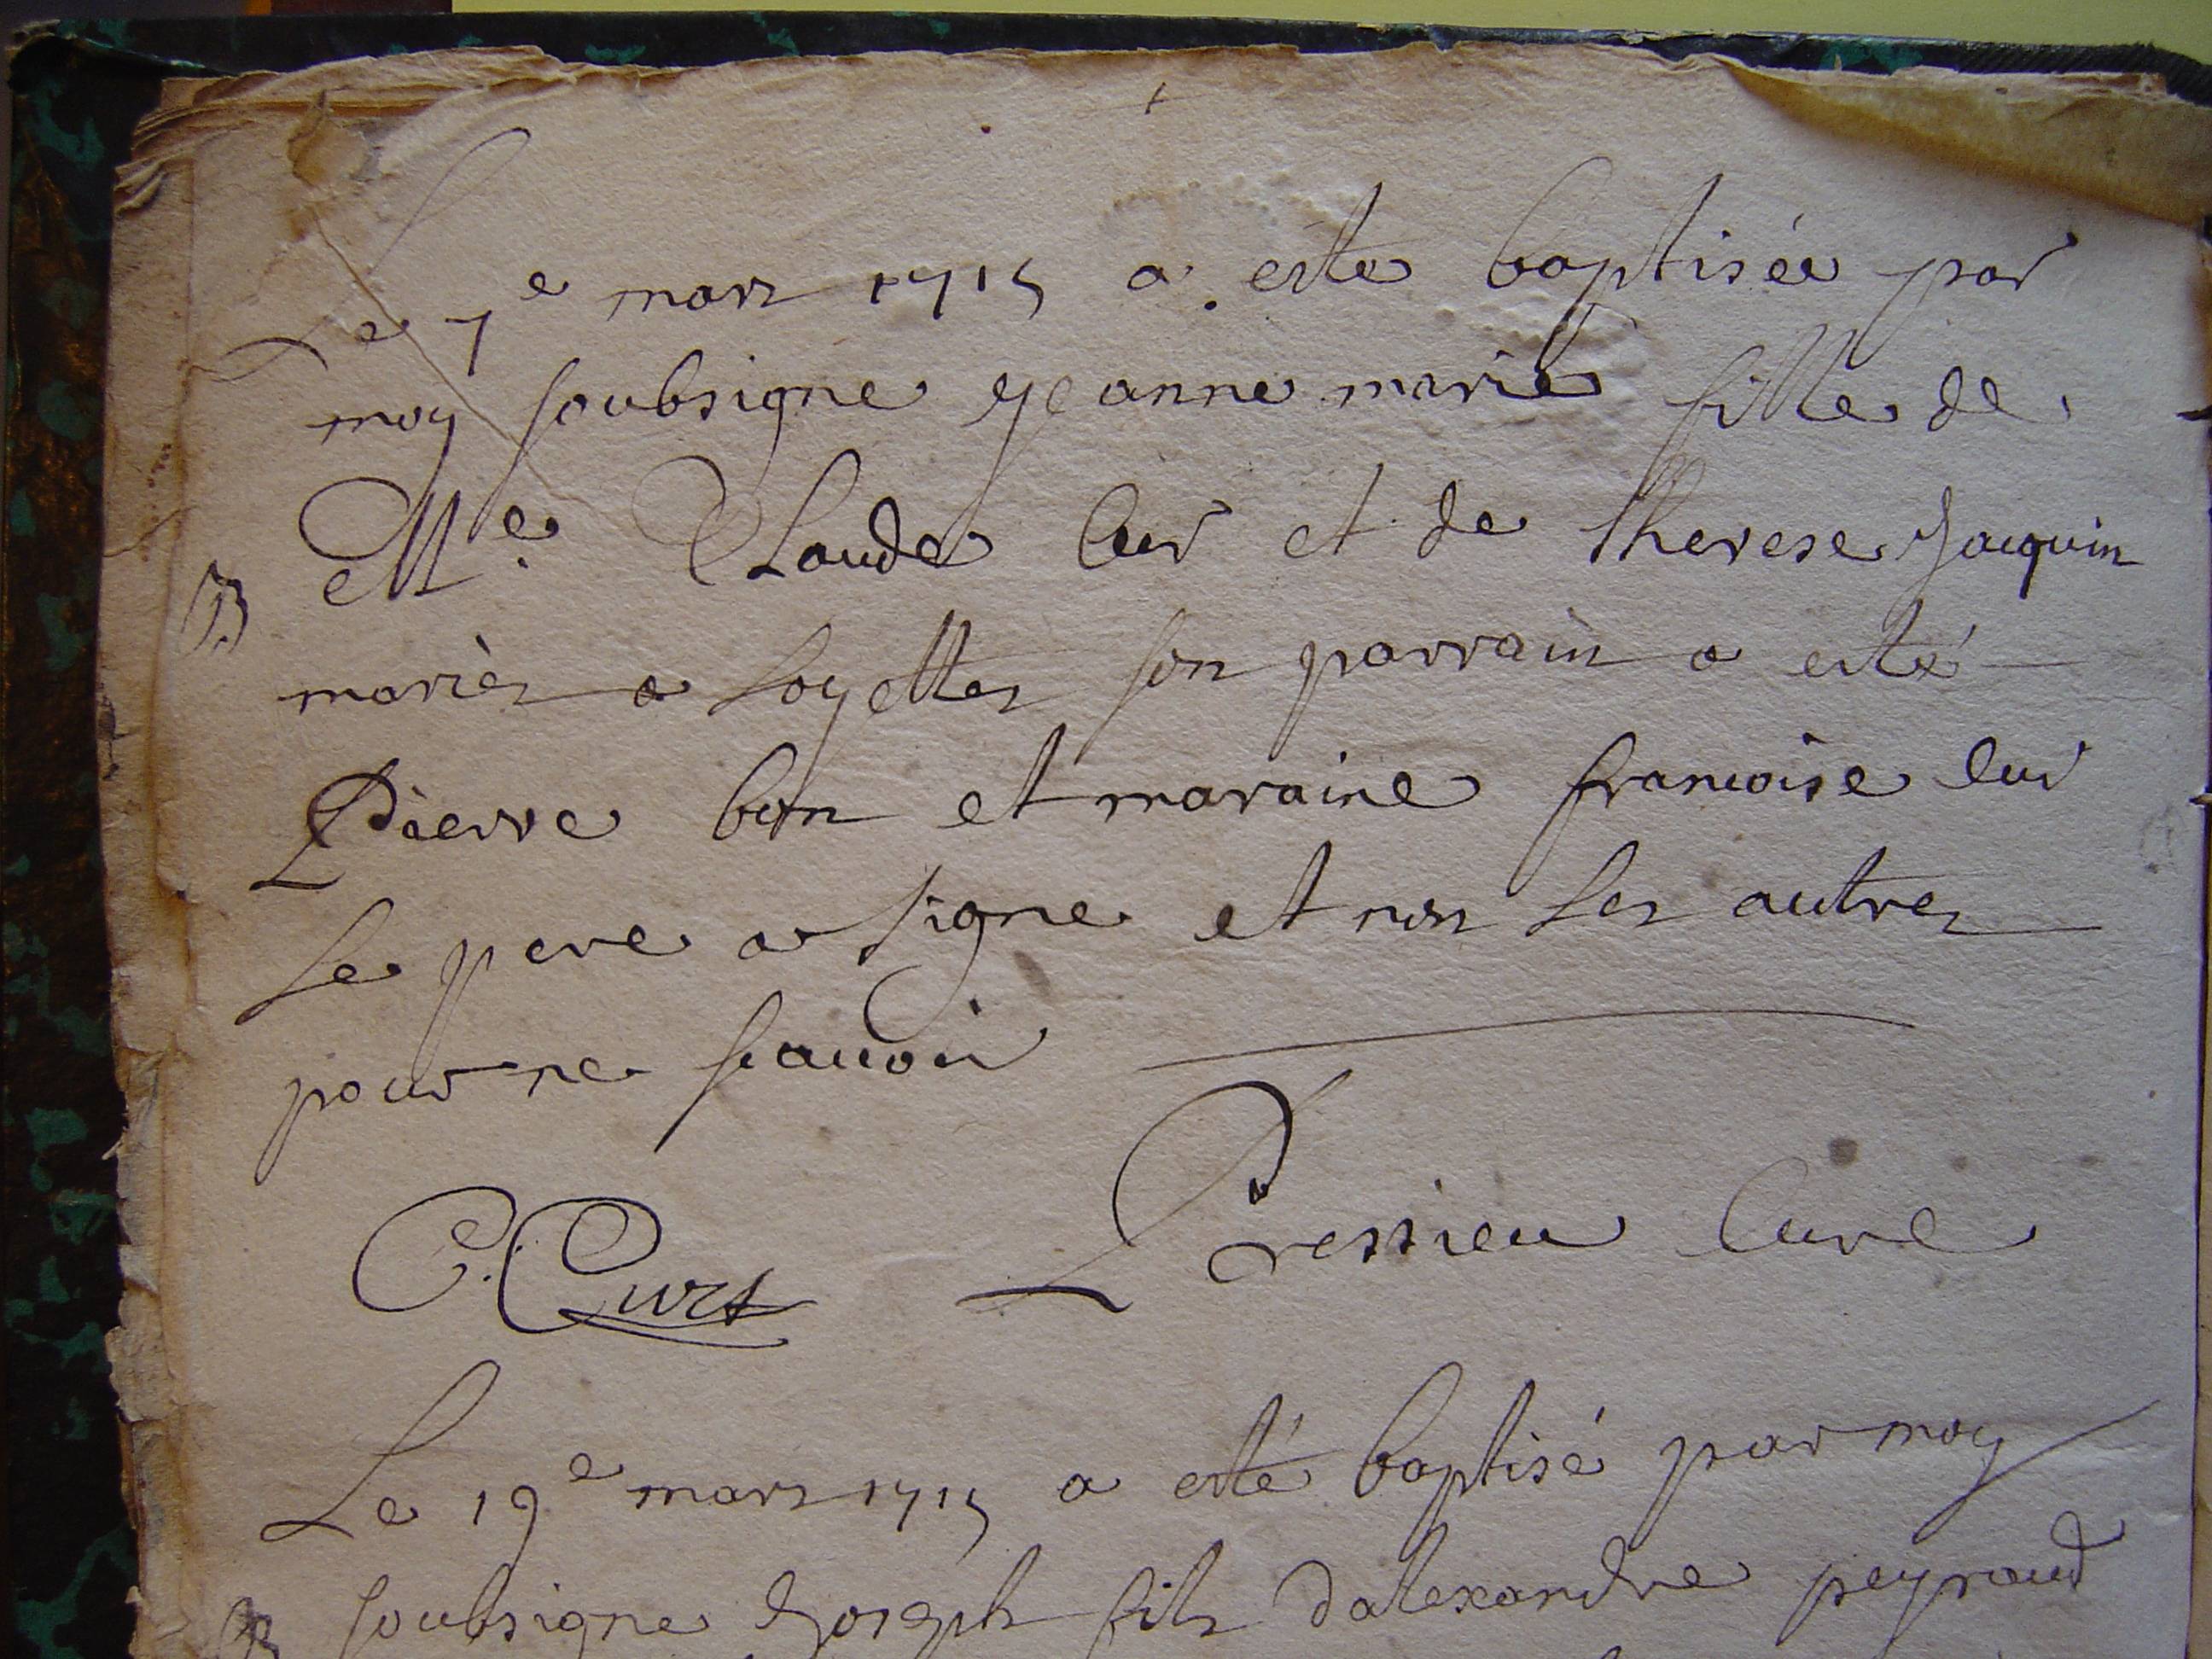 Le 7e mars 1715 a esté baptisée par
moy soubsigne Jeanne marie fille de
Me. Claude Cur et de therese Jaquin
mariés a Loyettes son parrain a esté
Pierre bon et maraine francoise Cur
Le pere a signe et non Les autres
pour ne scavoir
B
C. Curt
Pressieu Curé
Le 19e mars 1715 a esté baptisé par moy
soubsigne Joseph fils dalexandre peyraud
B